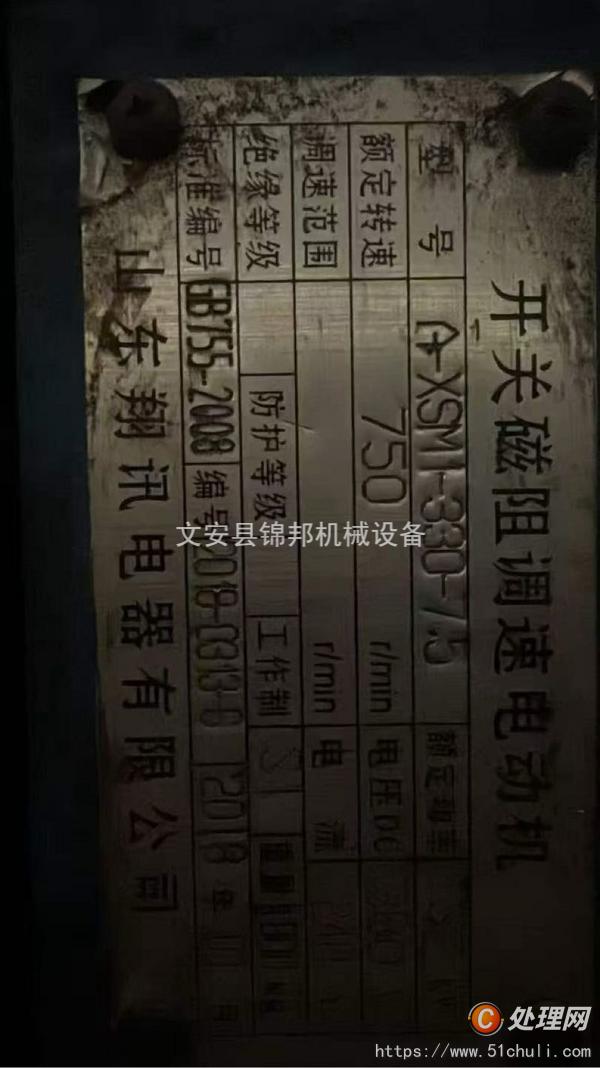 开关磁阻调速电动机
型号 XSM1-330-75 额定功率 kW
额定转速 750 r/min 电压DC
调速范围 r/min 电流
绝缘等级 防护等级 工作制 S1 重量
标准编号 GB755-2008 编号 2018-0313-6 2018年 月
山东翔讯电器有限公司
文安县锦邦机械设备
C 处理网
https://www.51chuli.com